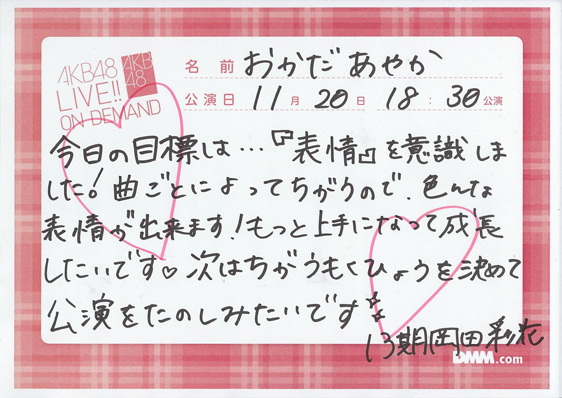 AKB48
LIVE!!
ON DEMAND
AKB
48
名前 おかだあやか
公演日 11月20日 18:30公演
今日の目標は…『表情』を意識しま
した!曲ごとによってちがうので、色んな
表情が出来ます!もっと上手になって成長
したいです♡次はちがうもくひょうを決めて
公演をたのしみたいです
13期岡田彩花
DMM.com